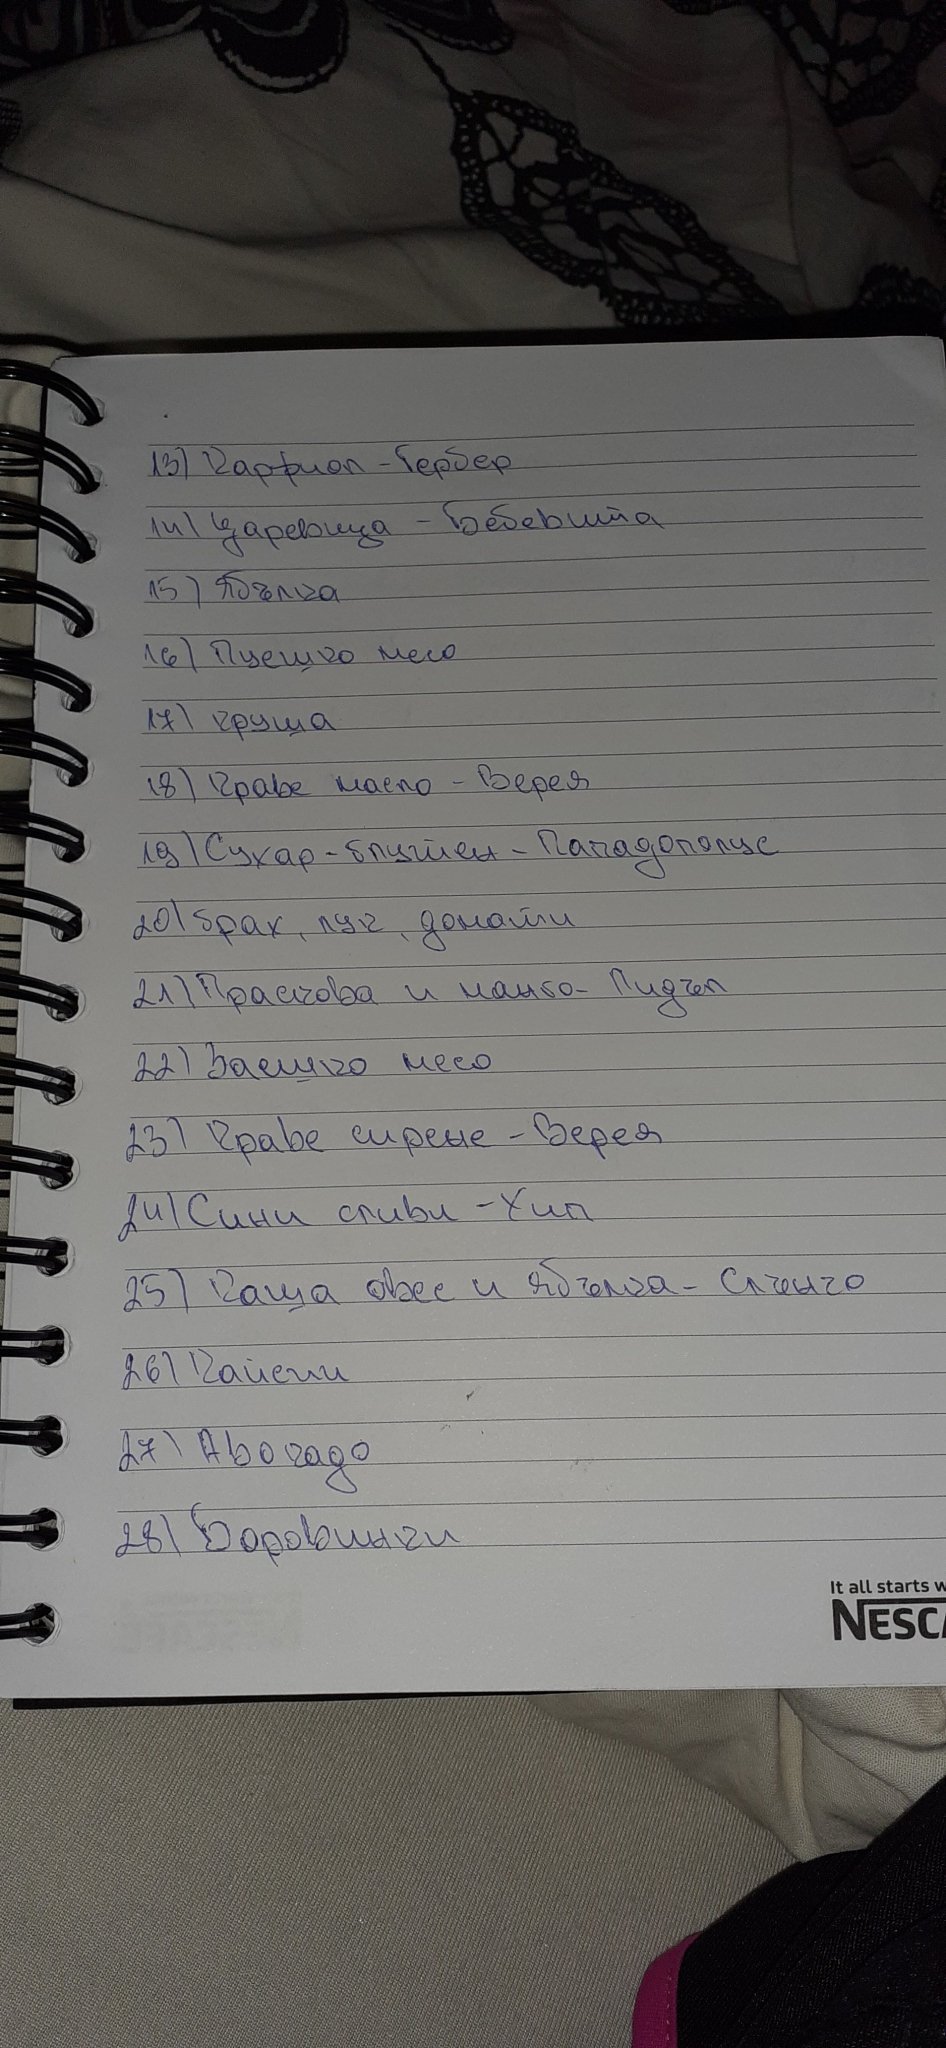 13) Карфиол - Гербер
14) Царевица - Бебевита
15) Ябълка
16) Пуешко месо
17) Круша
18) Краве масло - Верея
19) Сухар - глутен - Пападополус
20) Грах, лук, домати
21) Праскова и манго - Пидчел
22) Заешко месо
23) Краве сирене - Верея
24) Сини сливи - Хип
25) Каша овес и ябълка - Слънчо
26) Кайсии
27) Авокадо
28) Боровинки
It all starts w
NESCA